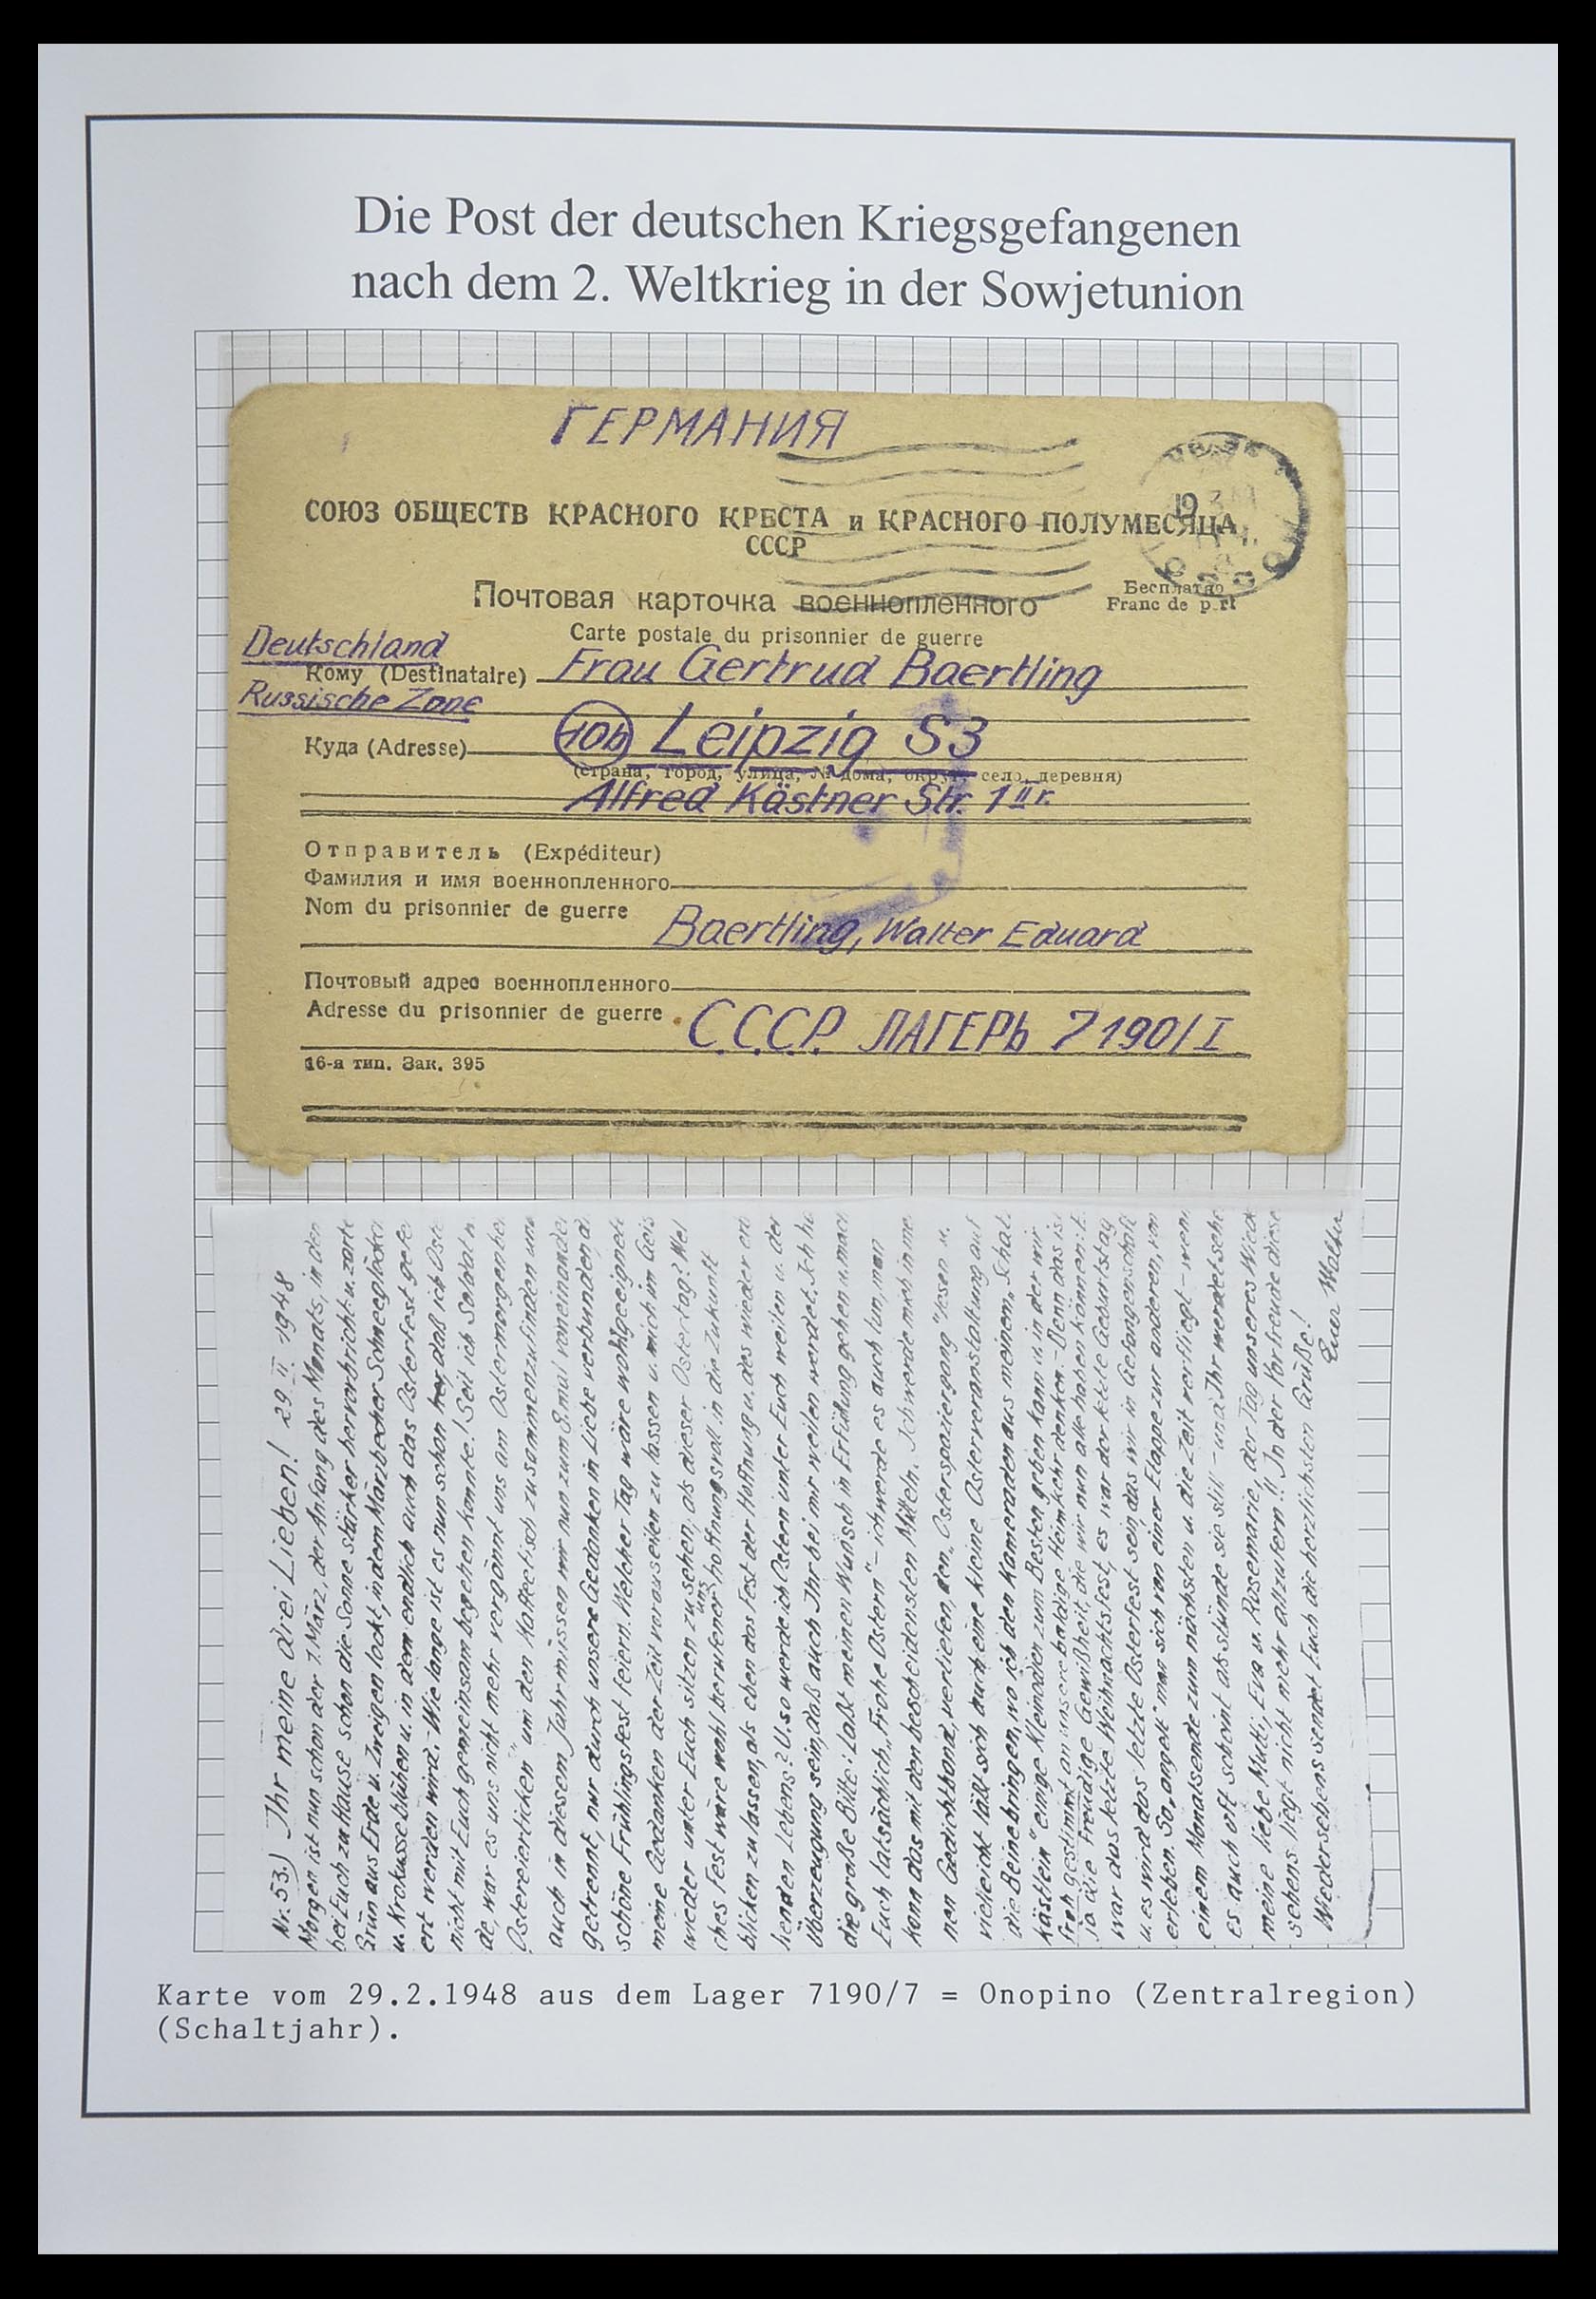 Die Post der deutschen Kriegsgefangenen
nach dem 2. Weltkrieg in der Sowjetunion
ГЕРМАНИЯ
19
СОЮЗ ОБЩЕСТВ КРАСНОГО КРЕСТА и КРАСНОГО ПОЛУМЕСЯЦА
СССР
Почтовая карточка военнопленного
Бесплатно
Franc de port
Carte postale du prisonnier de guerre
Deutschland
Кому (Destinataire) Frau Gertrud Baertling
Russische Zone
10b Leipzig S3
Куда (Adresse)
(страна, город, улица, № дома, округ, село, деревня)
Alfred Kästner Str. 1 II r.
Отправитель (Expéditeur)
Фамилия и имя военнопленного
Nom du prisonnier de guerre
Baertling, Walter Eduard
Почтовый адрес военнопленного
Adresse du prisonnier de guerre
С.С.С.Р. ЛАГЕРЬ 7190/I
16-я тип. Зак. 395
Nr. 53.) Ihr meine drei Lieben! 29 II 1948
Morgen ist nun schon der 1. März, der Anfang des Monats, in dem
bei Euch zu Hause schon die Sonne stärker hervorbricht u. zarte
Grün aus Erde u. Zweigen lockt, in dem Märzbecher Schneeglöckch
u. Krokusse blühen u. in dem endlich auch das Osterfest gefei
ert werden wird. - Wie lange ist es nun schon her, daß ich Oste
nicht mit Euch gemeinsam begehen konnte! Seit ich Soldat
de, war es uns nicht mehr vergönnt uns am Ostermorgen bei
Ostereierticken um den Kaffeetisch zusammenzufinden und
auch in diesem Jahr müssen wir nun zum 8. mal voneinander
getrennt, nur durch unsere Gedanken in Liebe verbunden d
schöne Frühlingsfest feiern. Welcher Tag wäre wohl geeignete
meine Gedanken der Zeit vorauseilen zu lassen u. mich im Geis
wieder unter Euch sitzen zu sehen, als dieser Ostertag? Wel
ches Fest wäre wohl berufener uns hoffnungsvoll in die Zukunft
blicken zu lassen, als eben das Fest der Hoffnung u. des wieder er
henden Lebens? U. so werde ich Ostern unter Euch weilen u. der
Überzeugung sein, daß auch Ihr bei mir weilen werdet. Ich ha
die große Bitte: Laßt meinen Wunsch in Erfüllung gehen u. mach
Euch tatsächlich „Frohe Ostern" - ich werde es auch tun, man
kann das mit den bescheidensten Mitteln. Ich werde mich in me
nen Gedichtband vertiefen, den „Osterspaziergang" lesen u.
vielleicht läßt sich auch eine kleine Osterveranstaltung auf
die Beine bringen, wo ich den Kameraden aus meinem „Schat
kästlein" einige Kleinodien zum Besten geben kann u. in der wir
froh gestimmt an unsere baldige Heimkehr denken. - Denn das ist
ja die freudige Gewißheit, die wir nun alle haben können: E
war das letzte Weihnachtsfest, es war der letzte Geburtstag
u. es wird das letzte Osterfest sein, das wir in Gefangenschaft
erleben. So „angelt" man sich von einer Etappe zur anderen, von
einem Monatsende zum nächsten u. die Zeit verfliegt - wenn
es auch oft scheint als stünde sie still - und Ihr werdet sehe
meine liebe Mutti, Eva u. Rosemarie, der Tag unseres Wied
sehens liegt nicht mehr allzufern!! In der Vorfreude diese
Wiedersehens sendet Euch die herzlichsten Grüße!
Euer Walter
Karte vom 29.2.1948 aus dem Lager 7190/7 = Onopino (Zentralregion)
(Schaltjahr).